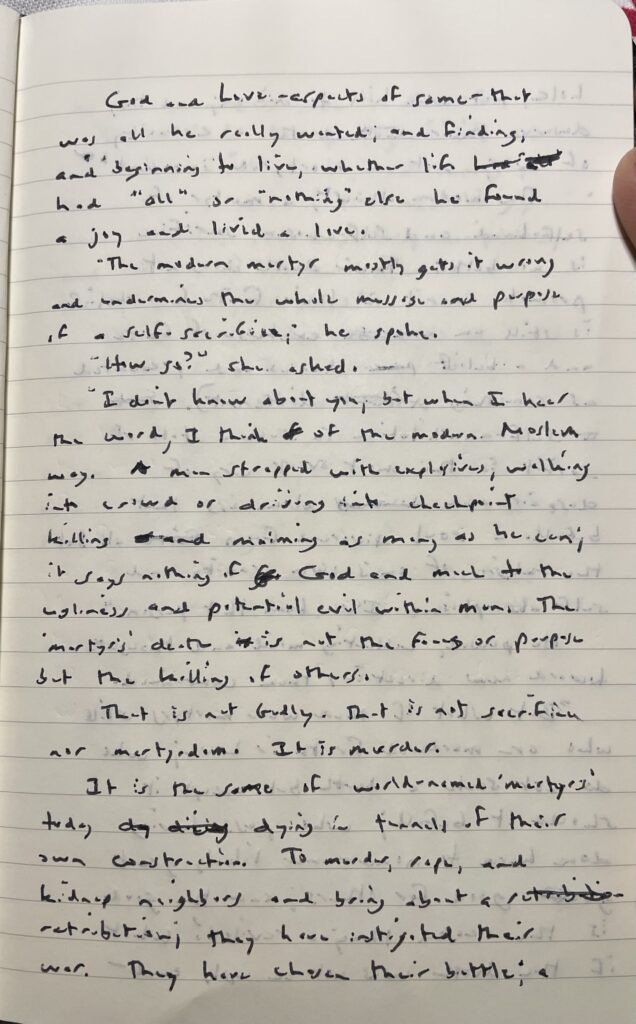 God and Love - aspects of same - that
was all he really wanted; and finding,
and beginning to live, whether life
had "all" or "nothing" else he found
a joy and lived a love.
"The modern martyr mostly gets it wrong
and undermines the whole message and purpose
of a self-sacrifice," he spoke.
"How so?" she asked.
"I don't know about you, but when I hear
the word, I think of the modern Moslem
way. A man strapped with explosives, walking
into crowd or driving into checkpoint
killing and maiming as many as he can;
it says nothing of God and much to the
ugliness and potential evil within man. The
'martyr's' death is not the focus or purpose
but the killing of others.
That is not Godly. That is not sacrifice
nor martyrdom. It is murder.
It is the same of world-named 'martyrs'
today dying in tunnels of their
own construction. To murder, rape, and
kidnap neighbors and bring about a
retribution; they have instigated their
war. They have chosen their battle; a